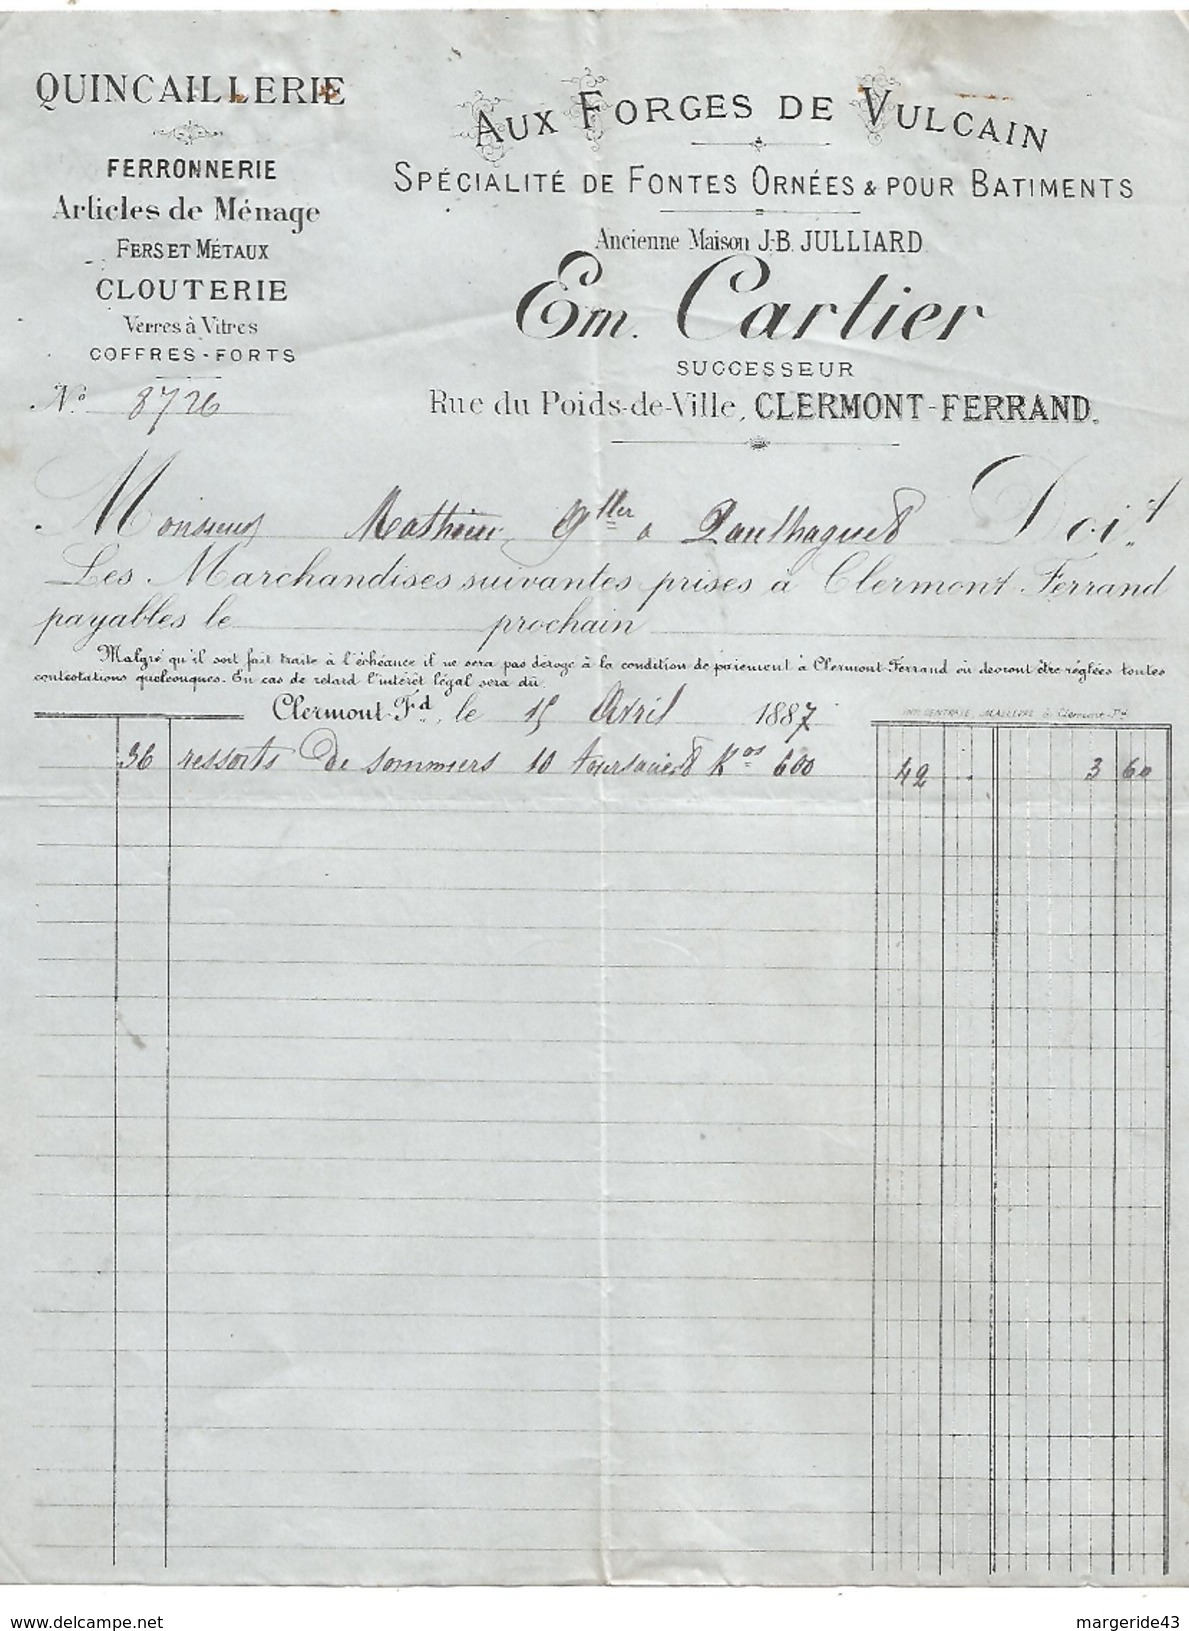 QUINCAILLERIE
FERRONNERIE
Articles de Ménage
FERS ET MÉTAUX
CLOUTERIE
Verres à Vitres
COFFRES-FORTS
N° 8726
AUX FORGES DE VULCAIN
SPÉCIALITÉ DE FONTES ORNÉES & POUR BATIMENTS
Ancienne Maison J-B. JULLIARD
Em. Cartier
SUCCESSEUR
Rue du Poids-de-Ville, CLERMONT-FERRAND.
Monsieur Mathieu, Qller a Paulhaguet Doit
Les Marchandises suivantes prises à Clermont-Ferrand
payables le prochain
Malgré qu'il soit fait traite à l'échéance il ne sera pas dérogé à la condition de paiement à Clermont-Ferrand où devront être réglées toutes
contestations quelconques. En cas de retard l'intérêt légal sera dû.
Clermont-Fd, le 15 Avril 1887
36 ressorts de sommiers 10 tours Kos 600 42 . 3 60
www.delcampe.net
margeride43